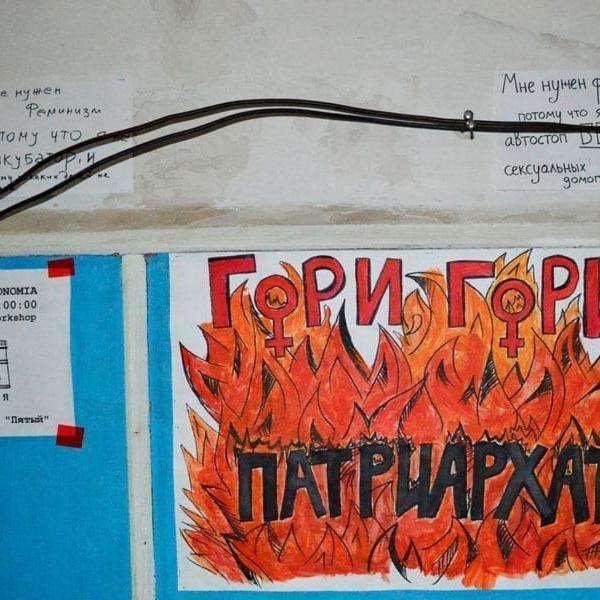 е нужен
Феминизм
тому что я не
инкубатор, и
Мне нужен ф
потому что я
автостоп
сексуальных
домог
ONOMIA
:00:00
orkshop
Я
"Пятый"
ГОРИ ГОРИ
ПАТРИАРХАТ